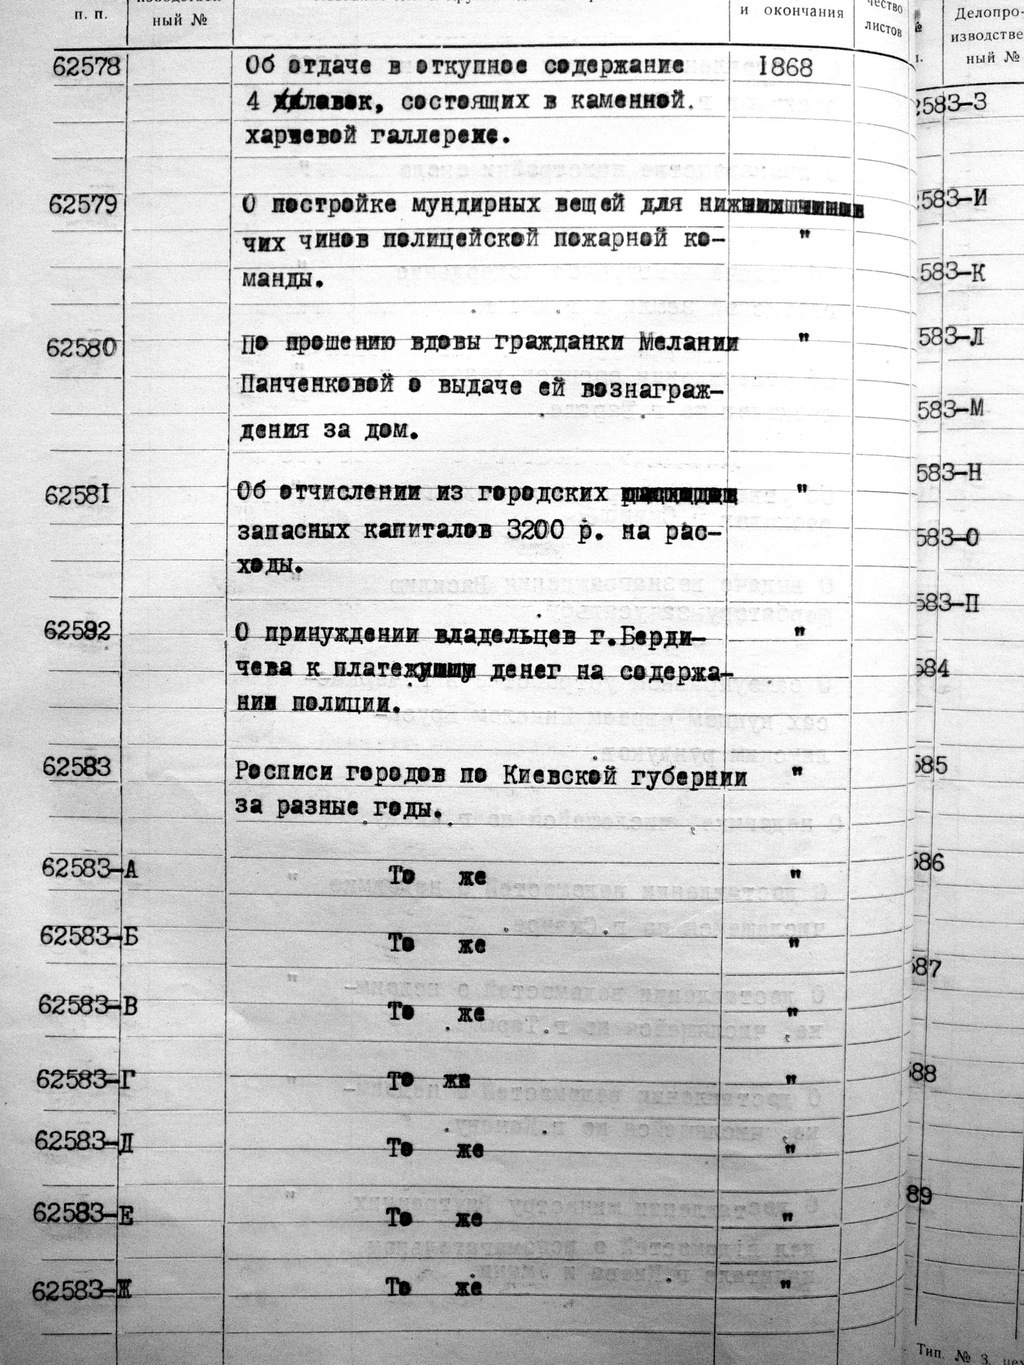 п. п.
ный №
и окончания
чество
листов
Делопро-
изводстве
ный №
62578 Об отдаче в откупное содержание 1868
4 лавок, состоящих в каменной.
харчевой галлерее.
62579 О постройке мундирных вещей для ниж
чих чинов полицейской пожарной ко- "
манды.
62580 По прошению вдовы гражданки Мелании "
Панченковой о выдаче ей вознаграж-
дения за дом.
62581 Об отчислении из городских "
запасных капиталов 3200 р. на рас-
ходы.
62582 О принуждении владельцев г.Берди- "
чева к платежу денег на содержа-
ние полиции.
62583 Росписи городов по Киевской губернии "
за разные годы.
62583-А То же "
62583-Б То же "
62583-В То же "
62583-Г То же "
62583-Д То же "
62583-Е То же "
62583-Ж То же "
583-З
583-И
583-К
583-Л
583-М
583-Н
583-О
583-П
584
585
586
587
588
89
Тип. № 3